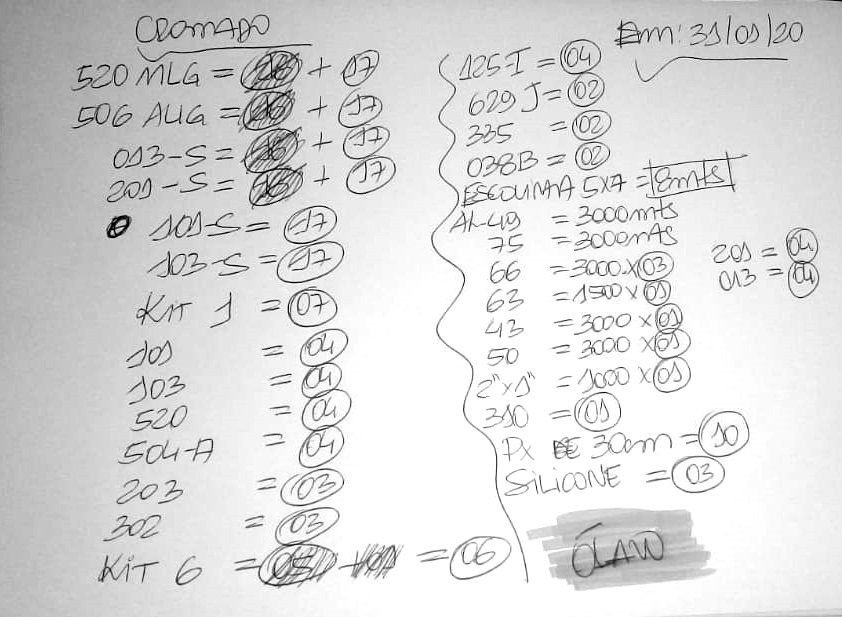 CROMADO
520 MLG = + 17
506 AUG = + 17
013-S = + 17
201-S = + 17
101-S = 17
103-S = 17
KIT 1 = 07
101 = 04
103 = 04
520 = 04
504-A = 04
203 = 03
302 = 03
KIT 6 = = 06
Em: 31/01/20
125-I = 04
629 J = 02
335 = 02
038B = 02
5X7 = 8mts
AL-49 = 3000mts
75 = 3000mts
66 = 3000 X 03
63 = 1500 X 01
43 = 3000 X 01
50 = 3000 X 01
2"x1" = 1000 X 01
310 = 01
Px DE 30cm = 10
SILICONE = 03
201 = 04
013 = 04